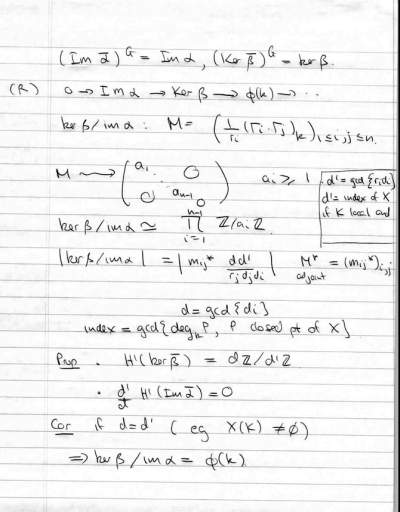 (Im ᾱ)^G = Im α, (Ker β̄)^G = ker β.
(R) 0 → Im α → Ker β → φ(k) → ...
ker β / im α : M = (1/r_i (Γ_i · Γ_j)_k)_{1 ≤ i,j ≤ n}.
M ⇝ (a_1 0 0 a_{n-1} 0) a_i ≥ 1
d' = gcd{r_i d_i}
d' = index of X
if K local and
ker β / im α ≃ ∏_{i=1}^{n-1} ℤ/a_i ℤ
|ker β / im α| = | m_{ij}^* dd' / r_j d_j d_i | M^* = (m_{ij}^*)_{i,j}
adjoint
d = gcd{d_i}
index = gcd{deg_k P, P closed pt of X}
Prop • H¹(ker β̄) = dℤ/d'ℤ
• d'/d H¹(Im ᾱ) = 0
Cor if d = d' (eg X(K) ≠ ∅)
⇒ ker β / im α = φ(k)